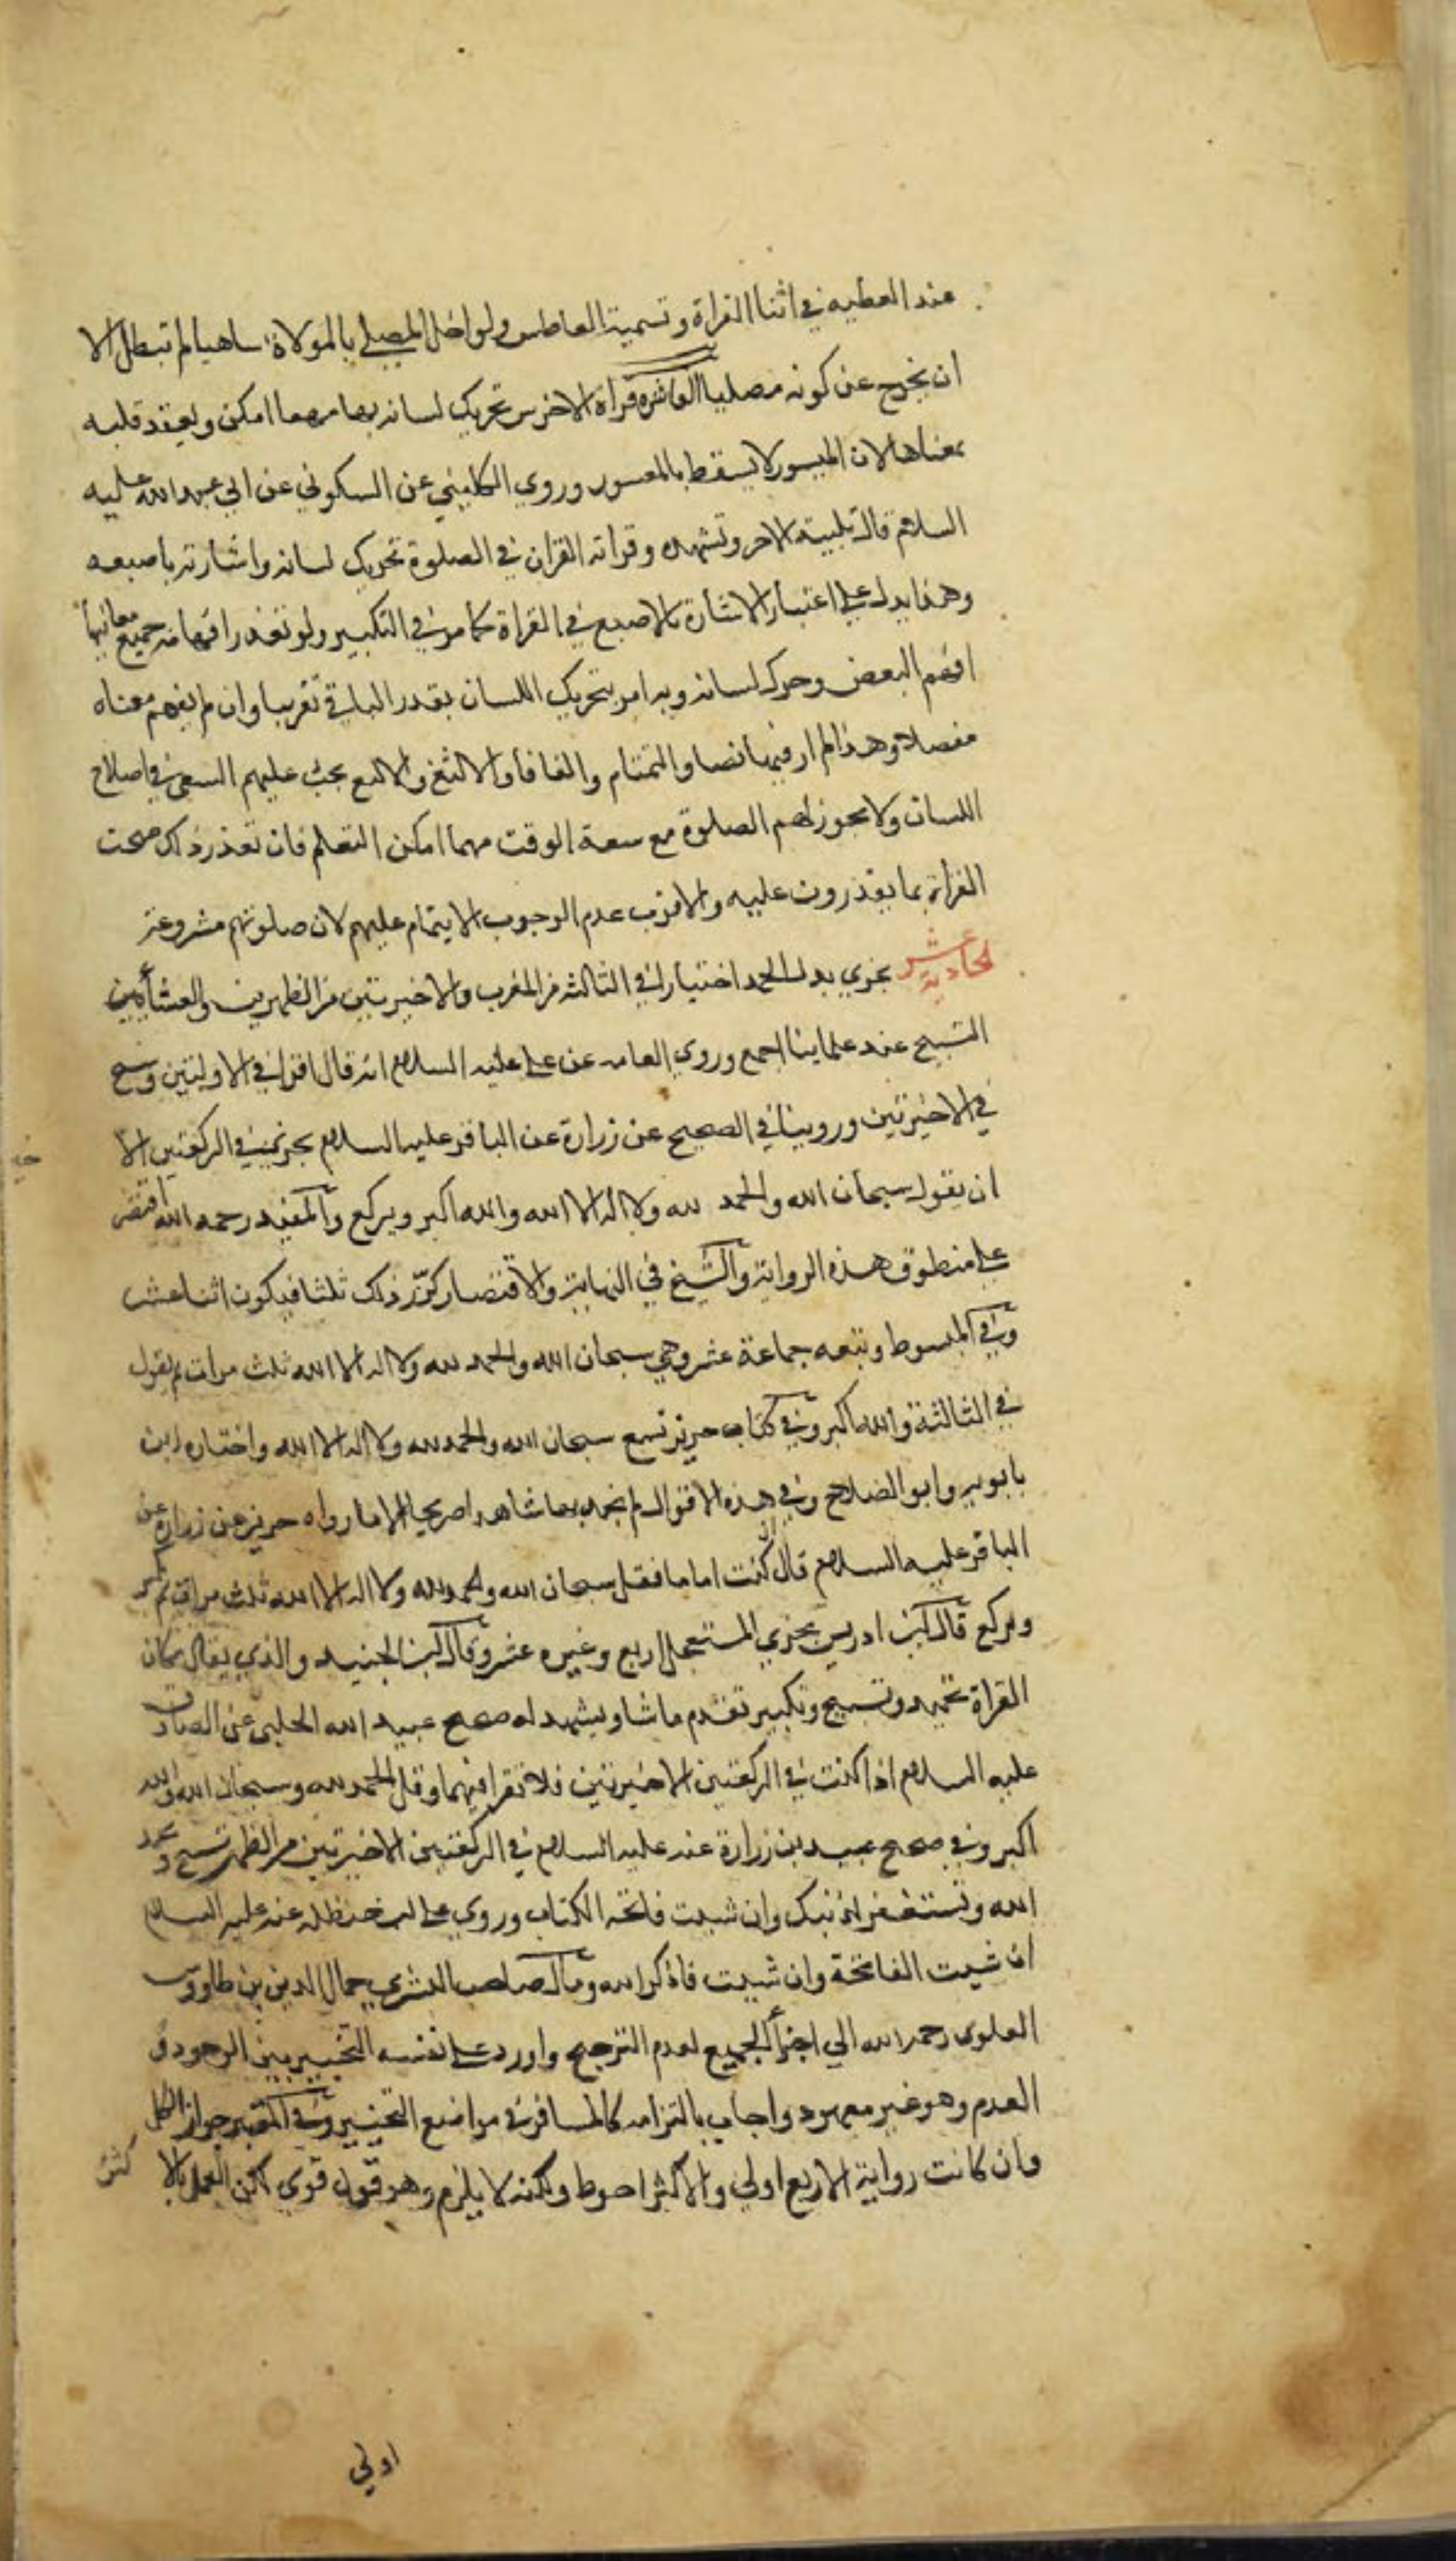 عند العطسه في اثنا القراة وتسمية العاطس ولو اخل المصلي بالموالاة ساهيا لم تبطل الا
ان يخرج عن كونه مصليا العاشرة قراة الاخرس تحريك لسانه بها مهما امكن ويعقد قلبه
بمعناها لان الميسور لا يسقط بالمعسور وروي الكليني عن السكوني عن ابي عبد الله عليه
السلام قال تلبية الاخرس وتشهده وقراته القران في الصلوة تحريك لسانه واشارته باصبعه
وهذا يدل علي اعتبار الاشارة بالاصبع في القراة كما مر في التكبير ولو تعذر افهامه جميع معانيها
افهم البعض وحرك لسانه وبه امر بتحريك اللسان بقدر الباقي تقريبا وان لم يفهم معناه
مفصلا وهذا لم ار فيه نصا والتمتام والفافا والالثغ والاليغ يجب عليهم السعي في اصلاح
اللسان ولا يجوز لهم الصلوة مع سعة الوقت مهما امكن التعلم فان تعذر ذلك صحت
القراة بما يقدرون عليه والاقرب عدم الوجوب الايتمام عليهم لان صلوتهم مشروعة
الحادية عشر يجزي بدل الحمد اختيارا في الثالثه من المغرب والاخيرتين من الظهرين والعشا أمين
التسبيح عند علماينا اجمع وروي العامه عن علي عليه السلام انه قال اقرا في الاوليتين وسبح
في الاخيرتين وروينا في الصحيح عن زرارة عن الباقر عليه السلام يجزئك في الركعتين الا
خيـ
ان يقول سبحان الله والحمد لله ولا اله الا الله والله اكبر ويركع والمفيد رحمه الله اقتصر
علي منطوق هذه الرواية والشيخ في النهاية والاقتصار كرر ذلك ثلثا فيكون اثنا عشر
وفي المبسوط وتبعه جماعة عشر وهي سبحان الله والحمد لله ولا اله الا الله ثلث مرات ثم يقول
في الثالثة والله اكبر وفي كتاب حريز تسع سبحان الله والحمد لله ولا اله الا الله واختاره ابن
بابويه وابو الصلاح وفي هذه الاقوال لم نجد بها شاهدا صريحا الا ما رواه حريز عن زرارة عن
الباقر عليه السلام قال ان كنت اماما فقل سبحان الله والحمد لله ولا اله الا الله ثلث مرات ثم تكبر
وتركع قال ابن ادريس يجزي المستعجل اربع وغيره عشر وقال ابن الجنيد والذي يقال مكان
القراة تحميد وتسبيح وتكبير تقدم ما شا ويشهد له صحيح عبيد الله الحلبي عن الصادق
عليه السلام اذا كنت في الركعتين الاخيرتين فلا تقرا فيهما وقل الحمد لله وسبحان الله والله
اكبر وفي صحيح عبيد بن زرارة عنه عليه السلام في الركعتين الاخيرتين من الظهر تسبح وتحمد
الله وتستغفر لذنبك وان شيت فاتحه الكتاب وروي علي بن حنظله عنه عليه السلام
ان شيت الفاتحة وان شيت فاذكر الله ومال صاحب البشري جمال الدين بن طاووس
العلوي رحمه الله الي اجزأ الجميع لعدم الترجيح واورد علي نفسه التخيير بين الوجود و
العدم وهو غير معهود واجاب بالتزامه كالمسافر في مواضع التخيير وفي المعتبر جواز الكل
وان كانت رواية الاربع اولي والاكثر احوط ولكنه لا يلزم وهو قول قوي لكن العمل بالا كثر
اولي